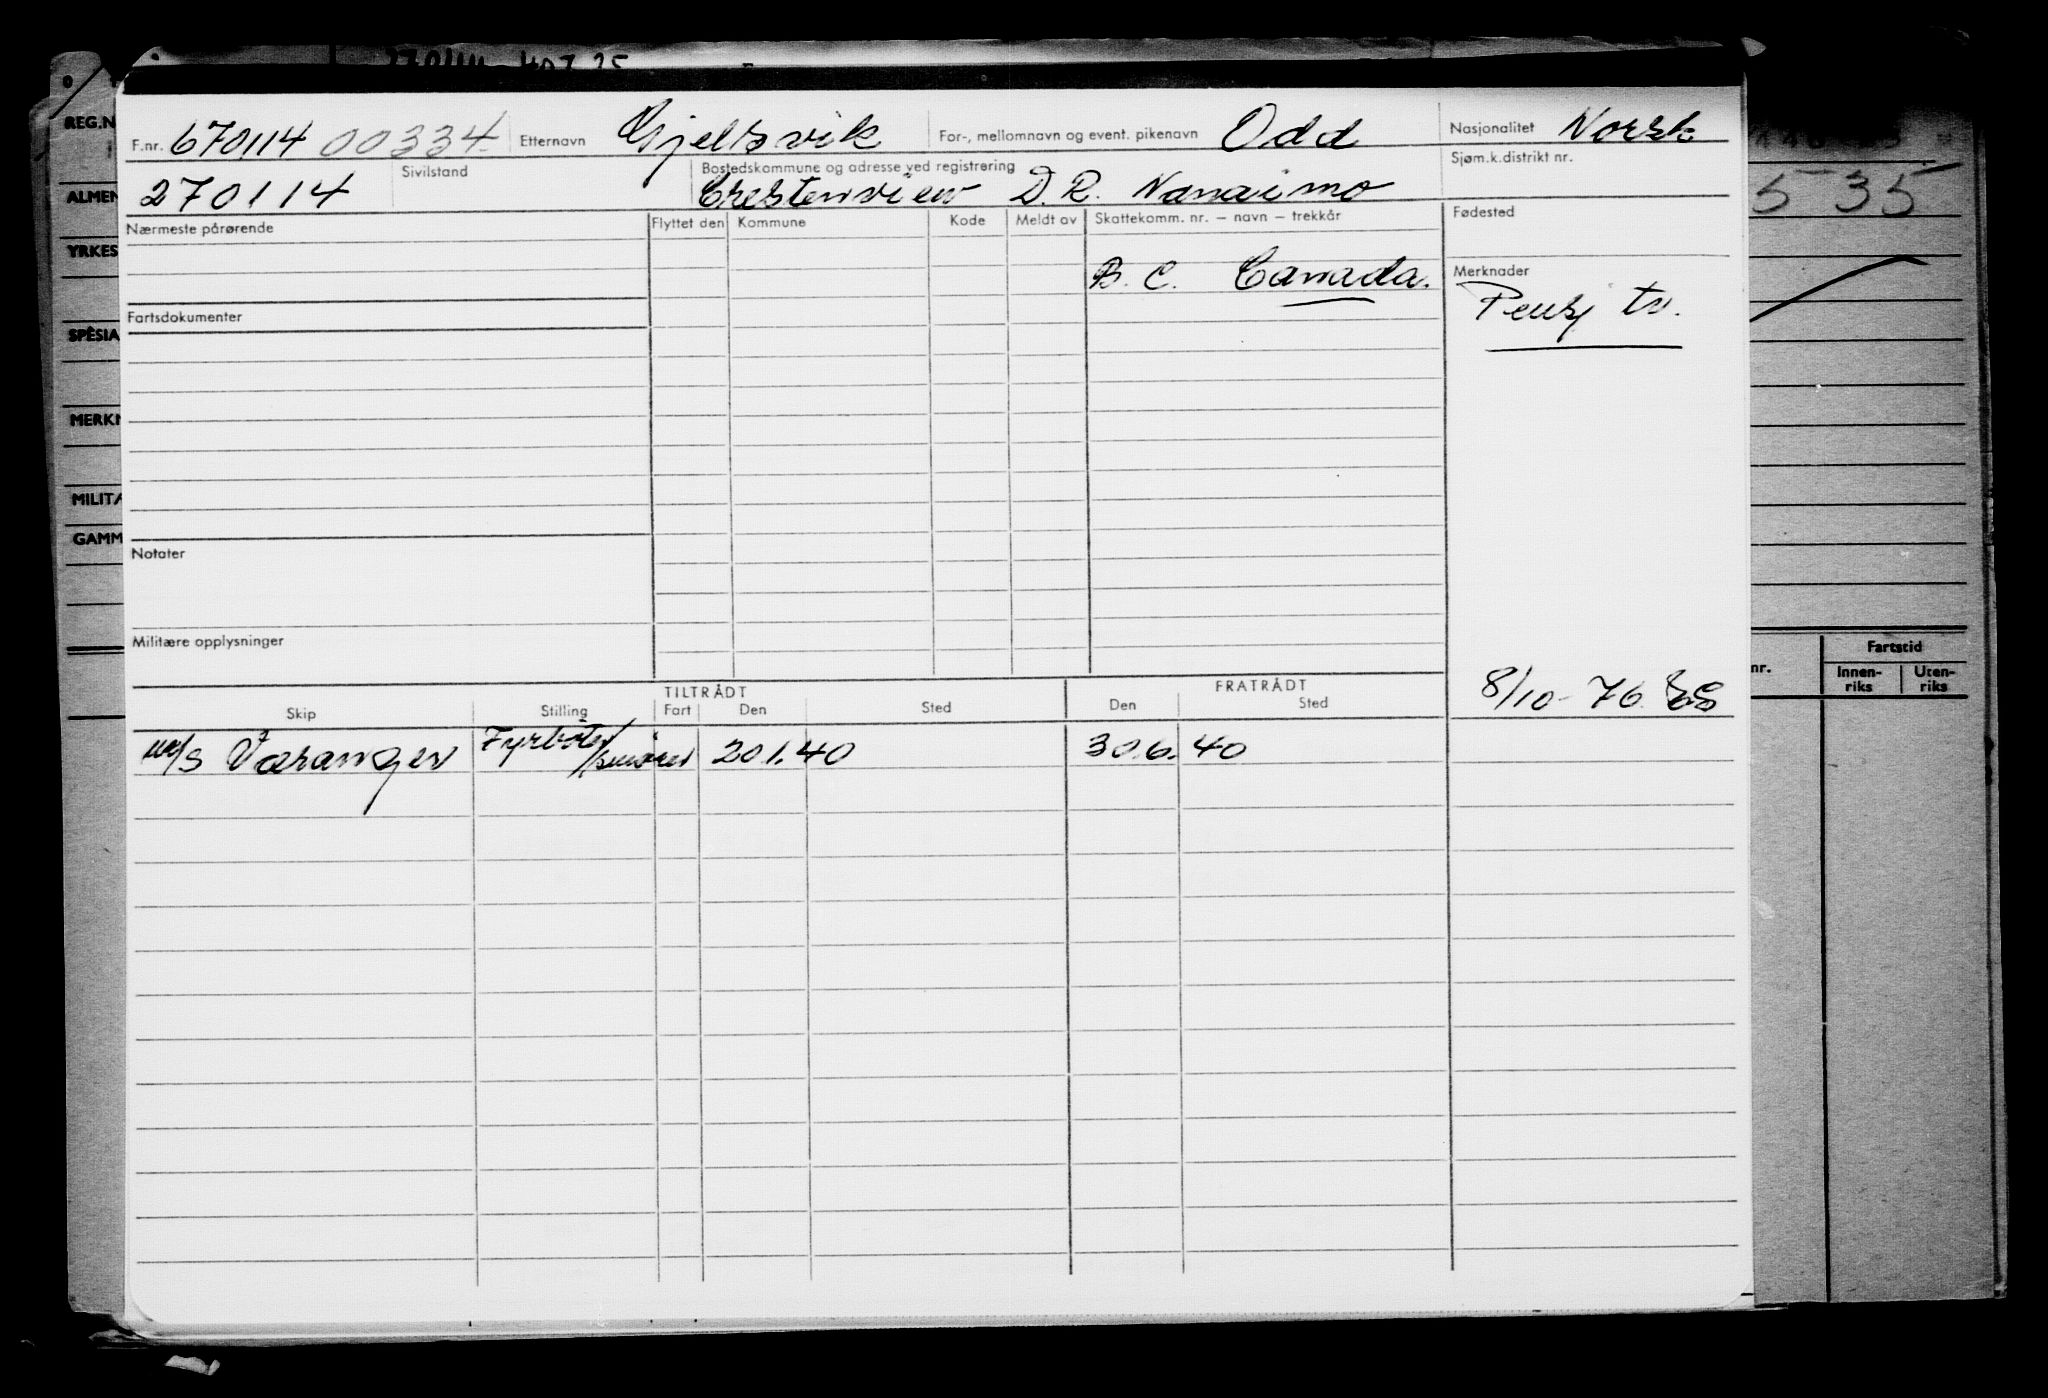 270114 407 25
REG.N
ALMEN
YRKES
SPESIA
MERKN
MILITÆ
GAMM
F.nr. 670114 00334 Etternavn Gjelsvik For-, mellomnavn og event. pikenavn Odd Nasjonalitet Norsk
270114 Sivilstand Bostedskommune og adresse ved registrering Crestenview D.R. Nanaimo Sjøm.k.distrikt nr.
Nærmeste pårørende Flyttet den Kommune Kode Meldt av Skattekomm. nr. – navn – trekkår Fødested
B. C. Canada. Merknader
Pensj tv.
Fartsdokumenter
Notater
Militære opplysninger
5 35
nr. Fartstid
Innen-riks Uten-riks
8/10-76
TILTRÅDT FRATRÅDT
Skip Stilling Fart Den Sted Den Sted
M/S Varanger Fyrbøter/smører 20.1.40 30.6.40